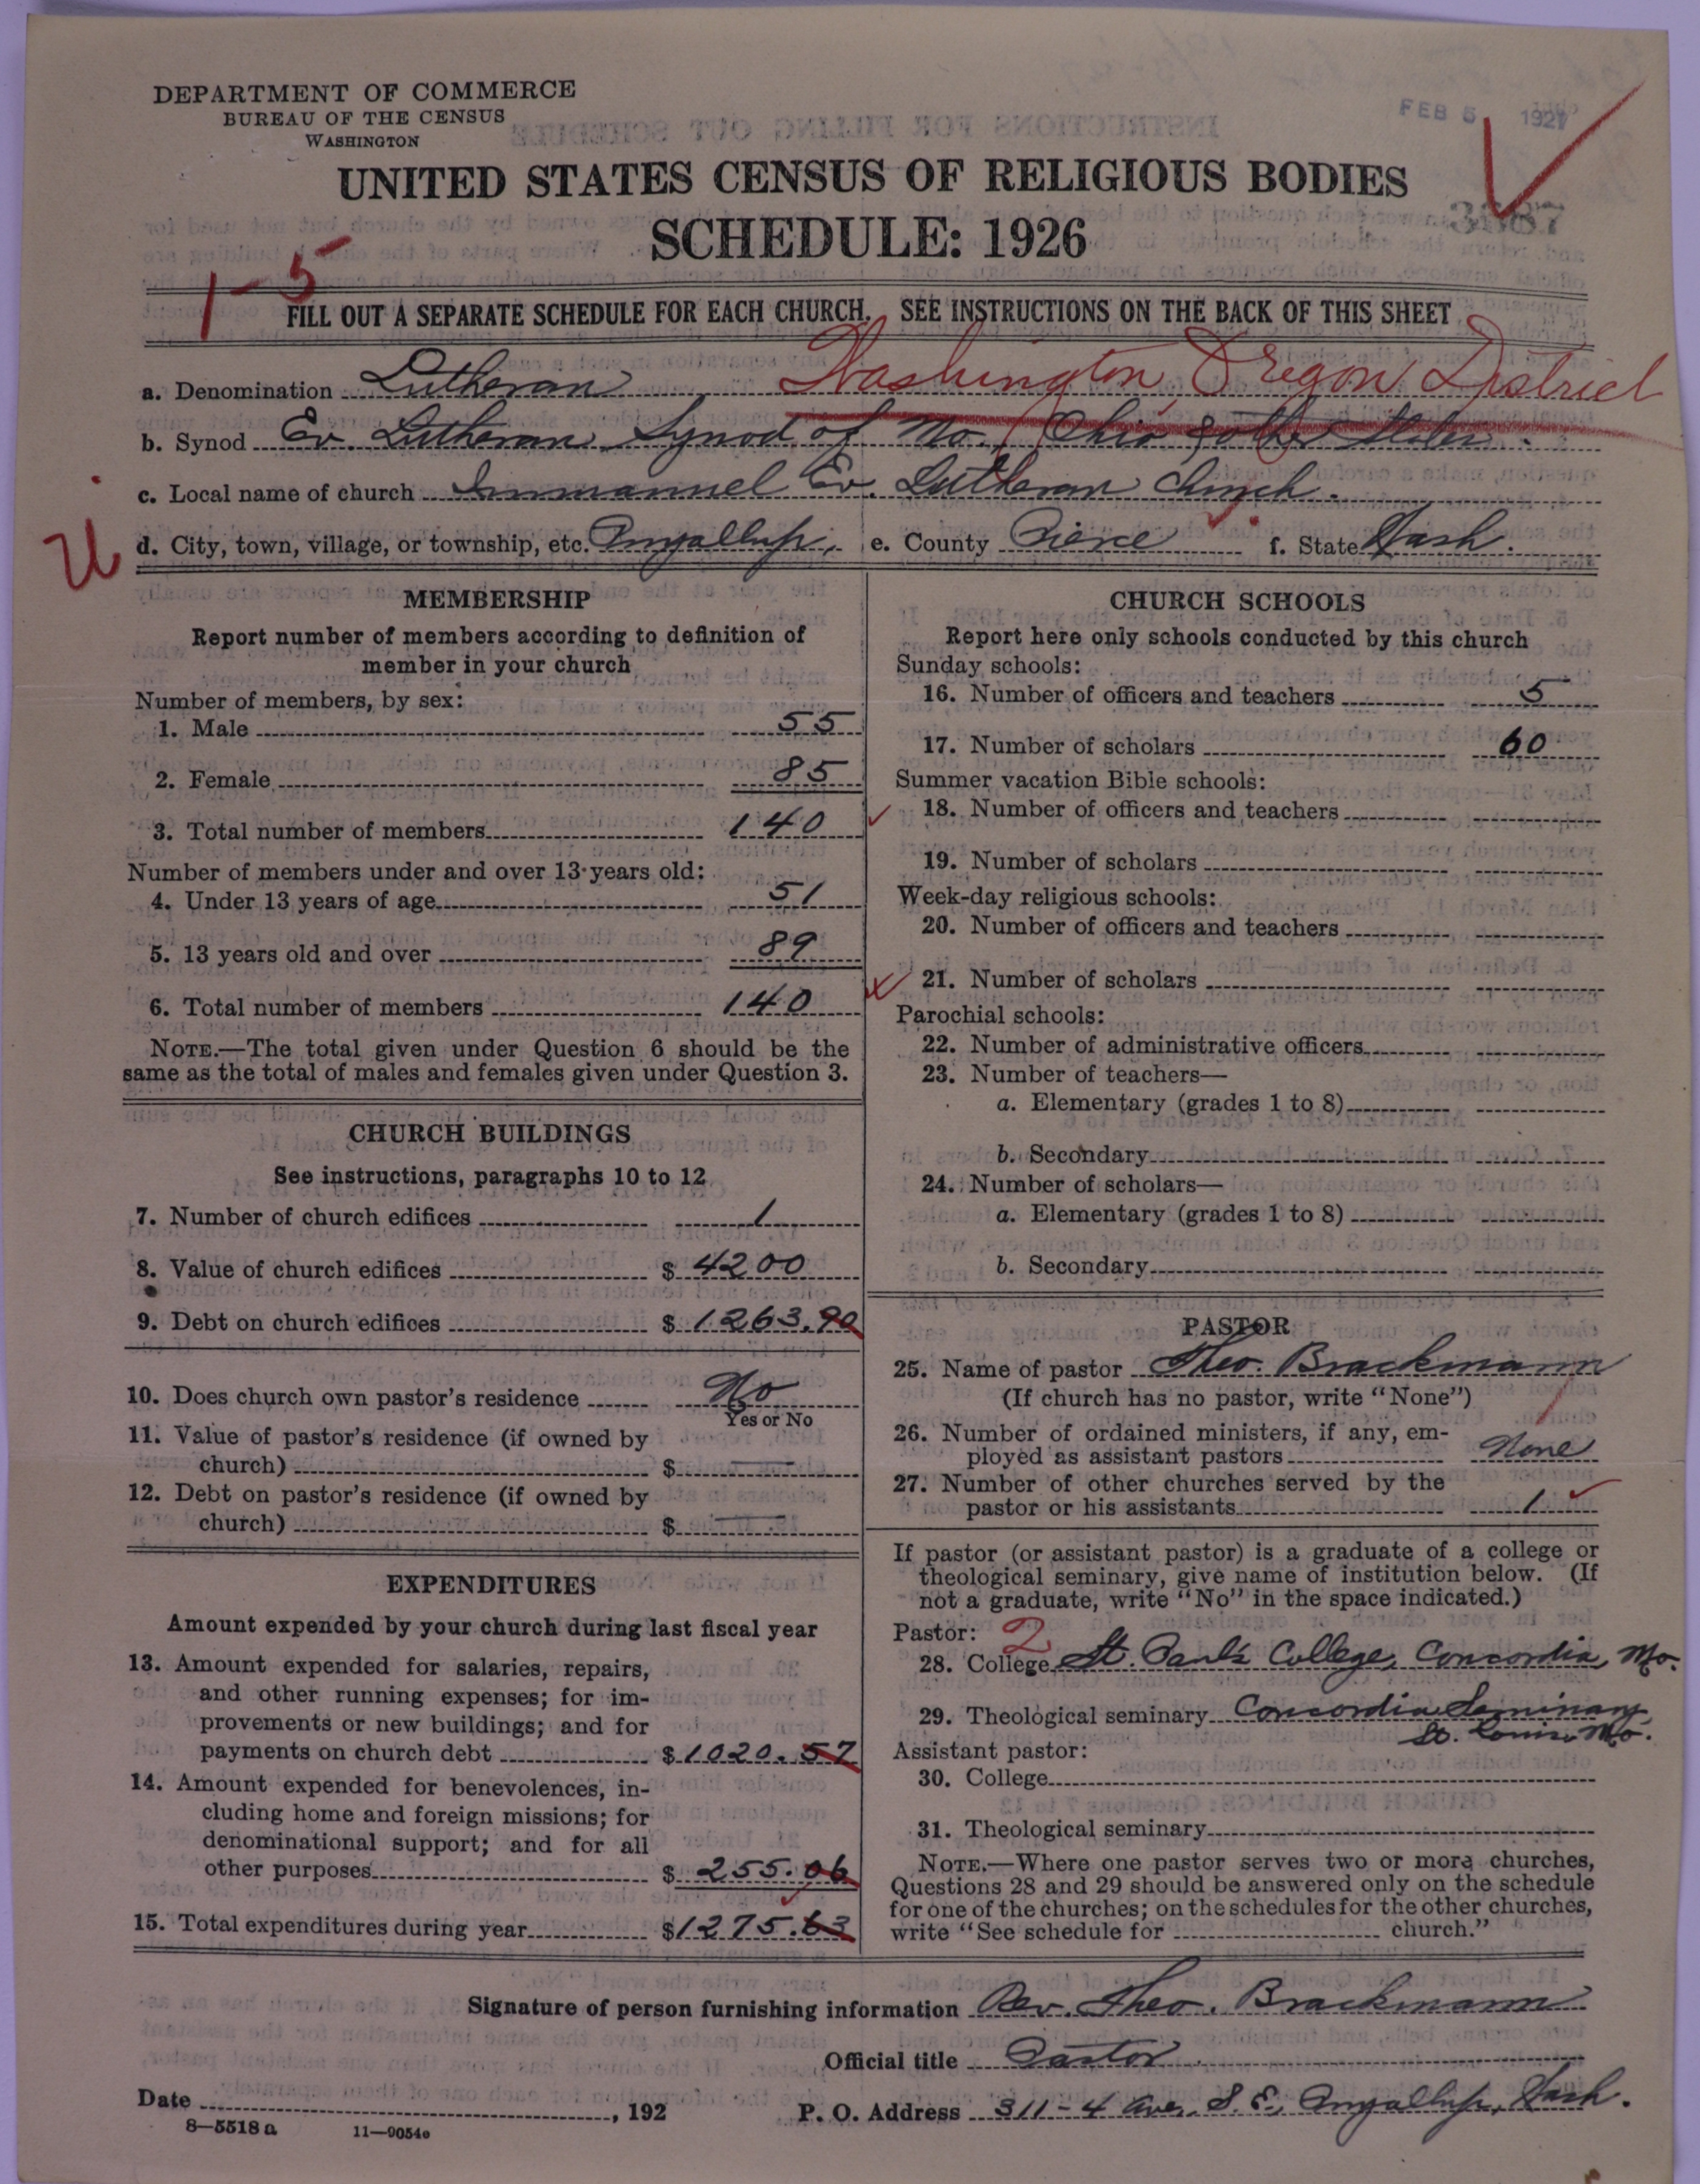 DEPARTMENT OF COMMERCE
BUREAU OF THE CENSUS
WASHINGTON
FEB 5 1927
UNITED STATES CENSUS OF RELIGIOUS BODIES
SCHEDULE: 1926
1-5
FILL OUT A SEPARATE SCHEDULE FOR EACH CHURCH. SEE INSTRUCTIONS ON THE BACK OF THIS SHEET
Washington, Oregon District
a. Denomination Lutheran
b. Synod Ev. Lutheran Synod of Mo., Ohio & other States.
c. Local name of church Immanuel Ev. Lutheran Church.
d. City, town, village, or township, etc. Puyallup, e. County Pierce f. State Wash.
MEMBERSHIP
Report number of members according to definition of
member in your church
Number of members, by sex:
1. Male 55
2. Female 85
3. Total number of members 140
Number of members under and over 13 years old:
4. Under 13 years of age 51
5. 13 years old and over 89
6. Total number of members 140
NOTE.—The total given under Question 6 should be the
same as the total of males and females given under Question 3.
CHURCH BUILDINGS
See instructions, paragraphs 10 to 12
7. Number of church edifices 1
8. Value of church edifices $ 4200
9. Debt on church edifices $ 1263.90
10. Does church own pastor's residence No
Yes or No
11. Value of pastor's residence (if owned by
church) $ —
12. Debt on pastor's residence (if owned by
church) $ —
EXPENDITURES
Amount expended by your church during last fiscal year
13. Amount expended for salaries, repairs,
and other running expenses; for im-
provements or new buildings; and for
payments on church debt $ 1020.57
14. Amount expended for benevolences, in-
cluding home and foreign missions; for
denominational support; and for all
other purposes $ 255.06
15. Total expenditures during year $ 1275.63
CHURCH SCHOOLS
Report here only schools conducted by this church
Sunday schools:
16. Number of officers and teachers 5
17. Number of scholars 60
Summer vacation Bible schools:
18. Number of officers and teachers
19. Number of scholars
Week-day religious schools:
20. Number of officers and teachers
21. Number of scholars
Parochial schools:
22. Number of administrative officers
23. Number of teachers—
a. Elementary (grades 1 to 8)
b. Secondary
24. Number of scholars—
a. Elementary (grades 1 to 8)
b. Secondary
PASTOR
25. Name of pastor Theo. Brackmann
(If church has no pastor, write "None")
26. Number of ordained ministers, if any, em-
ployed as assistant pastors None
27. Number of other churches served by the
pastor or his assistants 1
If pastor (or assistant pastor) is a graduate of a college or
theological seminary, give name of institution below. (If
not a graduate, write "No" in the space indicated.)
Pastor: 2
28. College St. Paul's College, Concordia, Mo.
29. Theological seminary Concordia Seminary,
St. Louis, Mo.
Assistant pastor:
30. College
31. Theological seminary
NOTE.—Where one pastor serves two or more churches,
Questions 28 and 29 should be answered only on the schedule
for one of the churches; on the schedules for the other churches,
write "See schedule for church."
Signature of person furnishing information Rev. Theo. Brackmann
Official title Pastor
Date , 192
P. O. Address 311-4 Ave. S. E., Puyallup, Wash.
8—5518 a 11—9054e